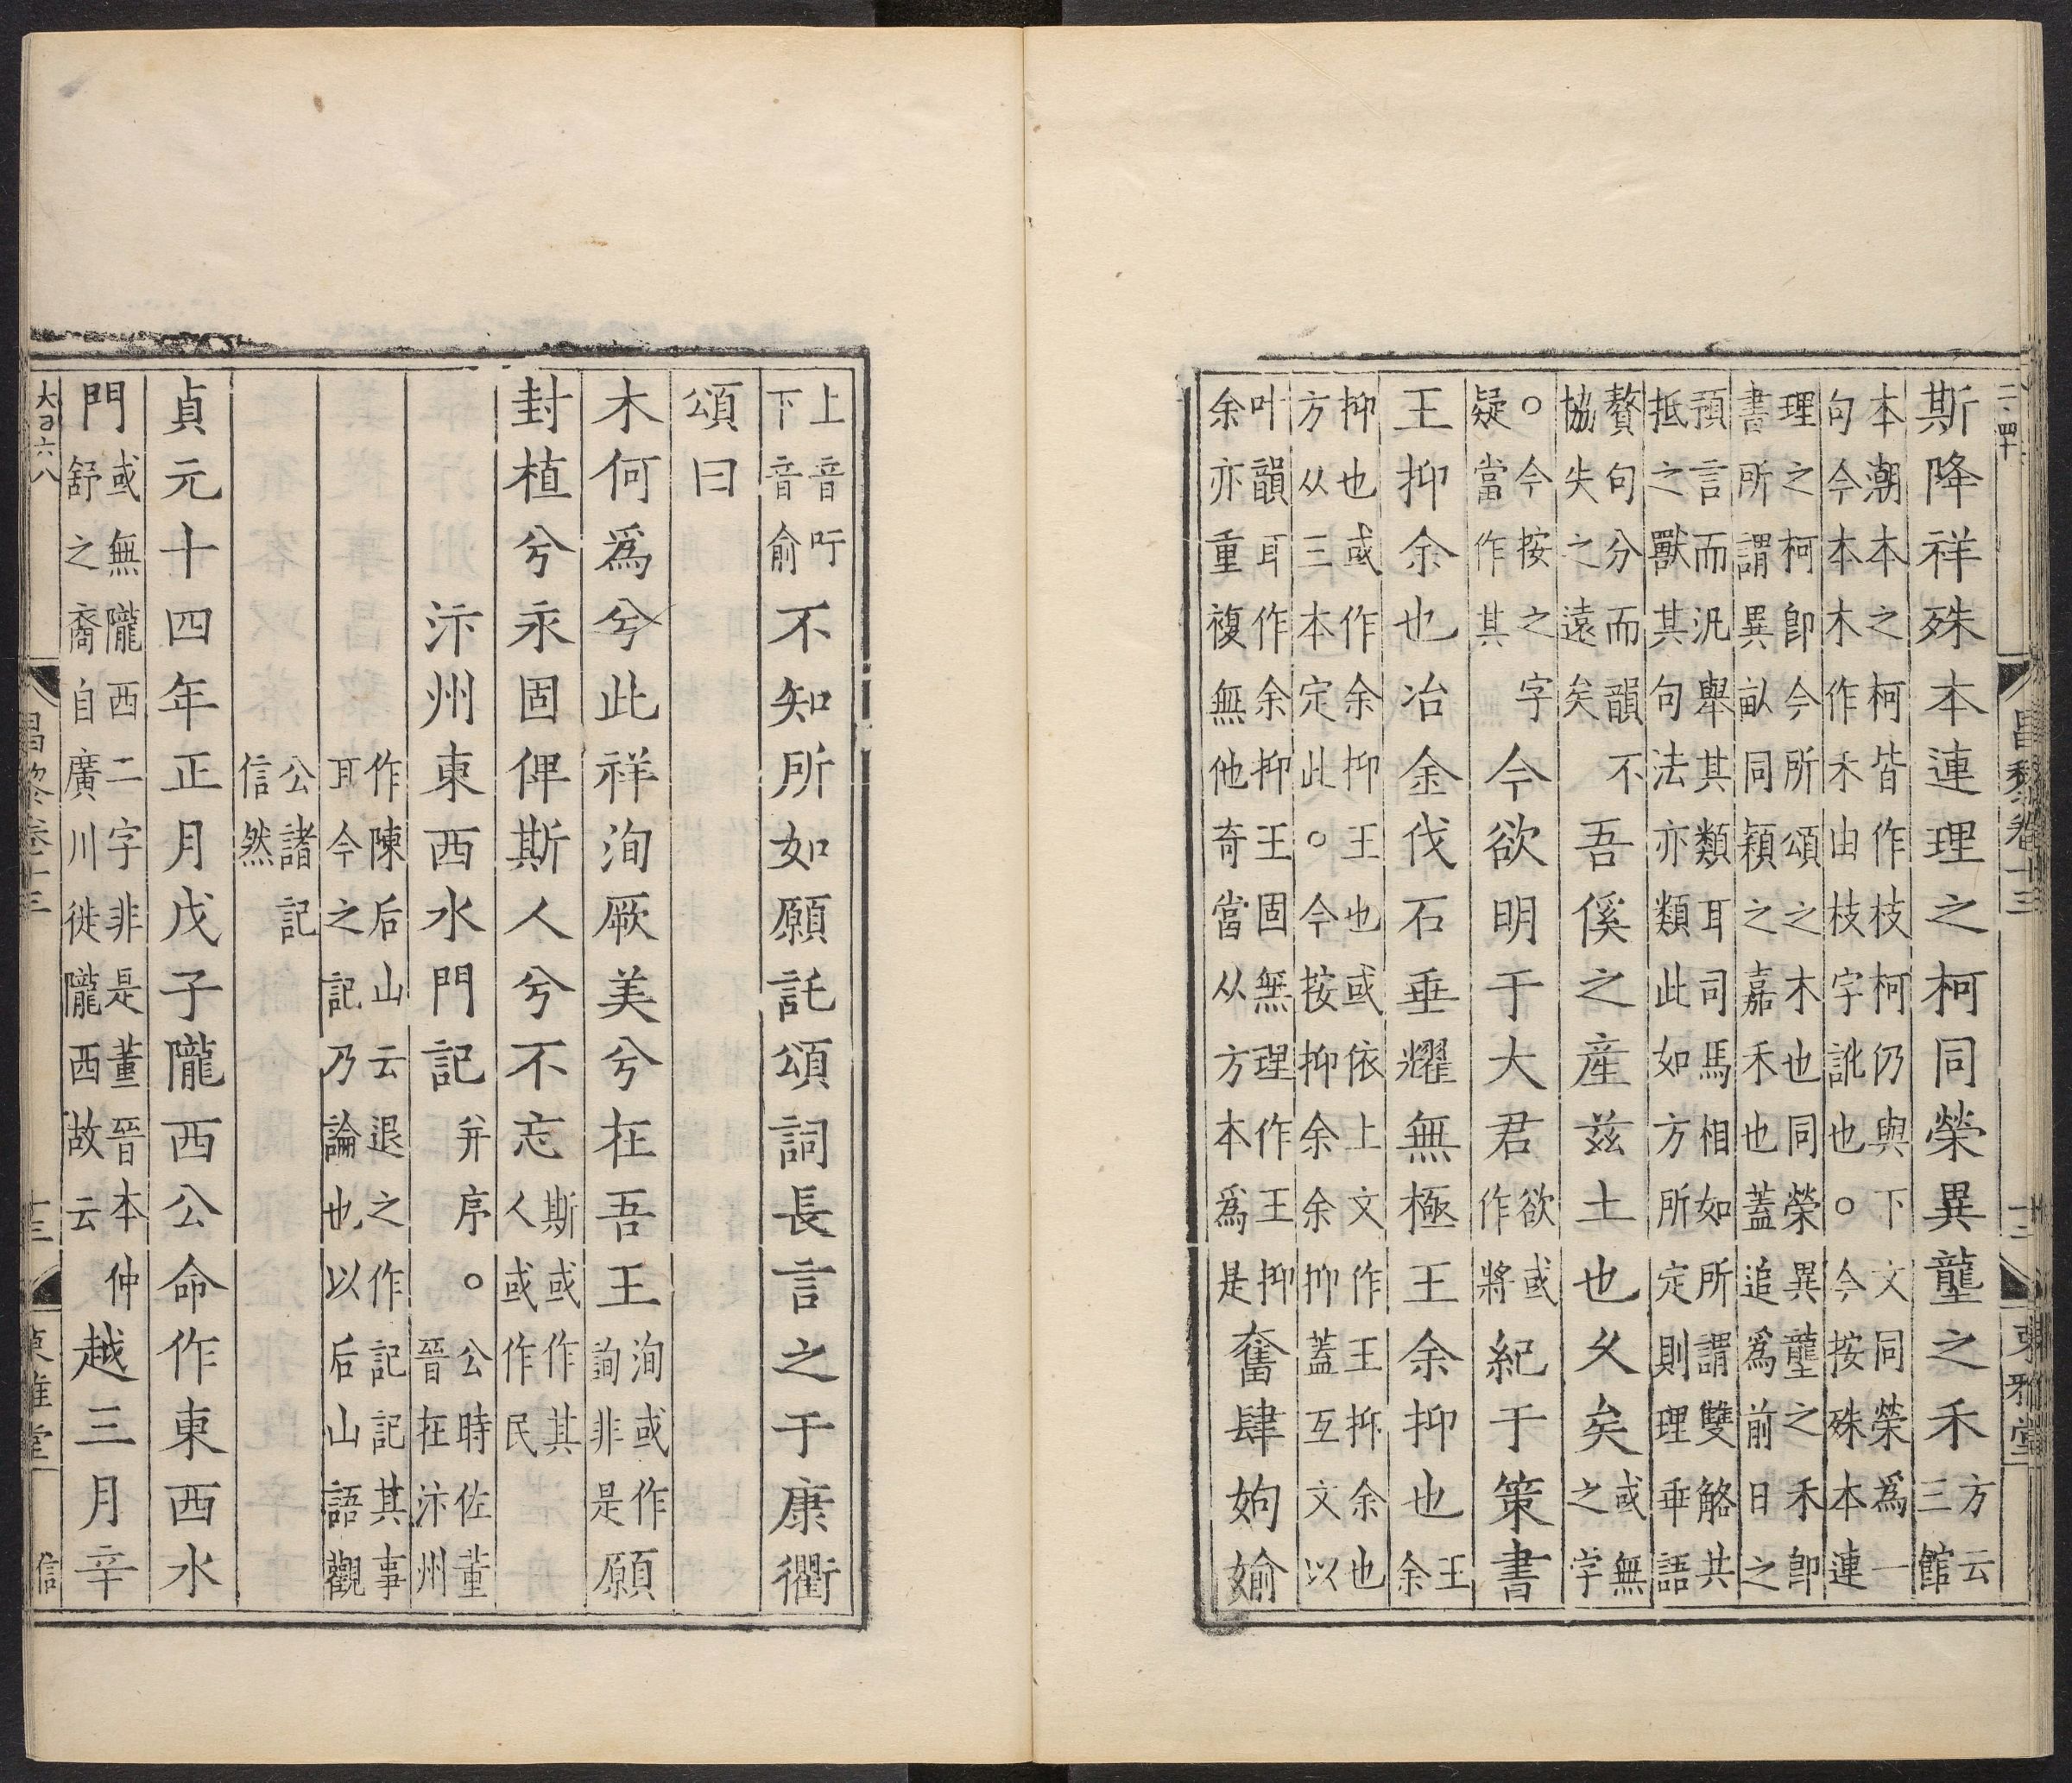 二、四十
昌黎卷十三
十二
東雅堂
斯降祥殊本連理之柯同榮異壟之禾方云三館
本朝本之柯皆作枝柯仍與下文同榮爲一
句今本木作禾由枝字訛也○今按殊本連
理之柯卽今所頌之木也同榮異壟之禾卽
書所謂異畝同穎之嘉禾也蓋追爲前日之
預言而汎舉其類耳司馬相如所謂雙觡共
抵之獸其句法亦類此如方所定則理垂語
贅句分而韻不協失之遠矣吾傒之產兹土也久矣或無之字
○今按之字疑當作其今欲明于大君欲或作將紀于策書
王抑余也冶金伐石垂耀無極王余抑也王余
抑也或作余抑王也或依上文作王抑余也
方从三本定此○今按抑余余抑蓋互文以
叶韻耳作余抑王固無理作王抑余亦重複無他奇當从方本爲是奮肆姁媮
上音吁下音俞不知所如願託頌詞長言之于康衢
頌曰
木何爲兮此祥洵厥美兮在吾王洵或作詢非是願
封植兮永固俾斯人兮不忘斯或作其人或作民
汴州東西水門記并序○公時佐董晉在汴州
作陳后山云退之作記記其事
耳今之記乃論也以后山語觀
公諸記信然
貞元十四年正月戊子隴西公命作東西水
門或無隴西二字非是董晉本仲舒之裔自廣川徙隴西故云越三月辛
昌黎卷十三
十三
東雅堂
信